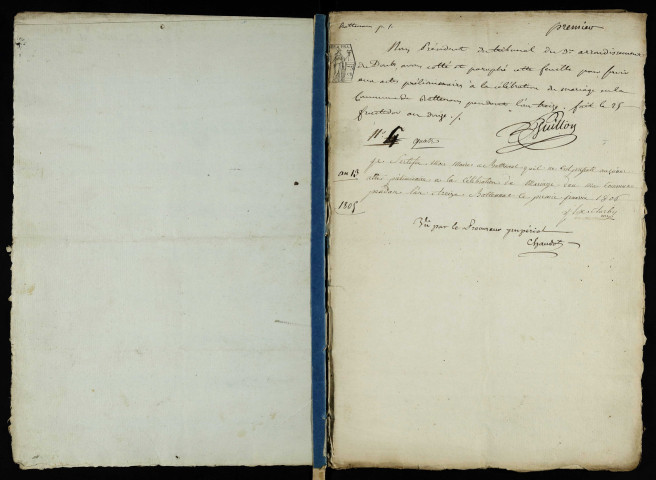 Battenans p. 1.
premier
Nous Président du tribunal du 3e arrondissement
du Doubs, avons cotté et paraphé cette feuille pour servir
aux actes préliminaires à la célébration du mariage en la
Commune de Battenans pendant l'an treize. fait le 25
fructidor an douze ./.
Guillon
N.o 4 quatre
je Certifie moi Maire de Battenans qu'il ne
actes préliminaire a la Célébration de Mariage dans ma Commune
an 13
pendant l'an treize Battenans le premier 1806
1805
Vu par le Procureur impérial
Chaudot